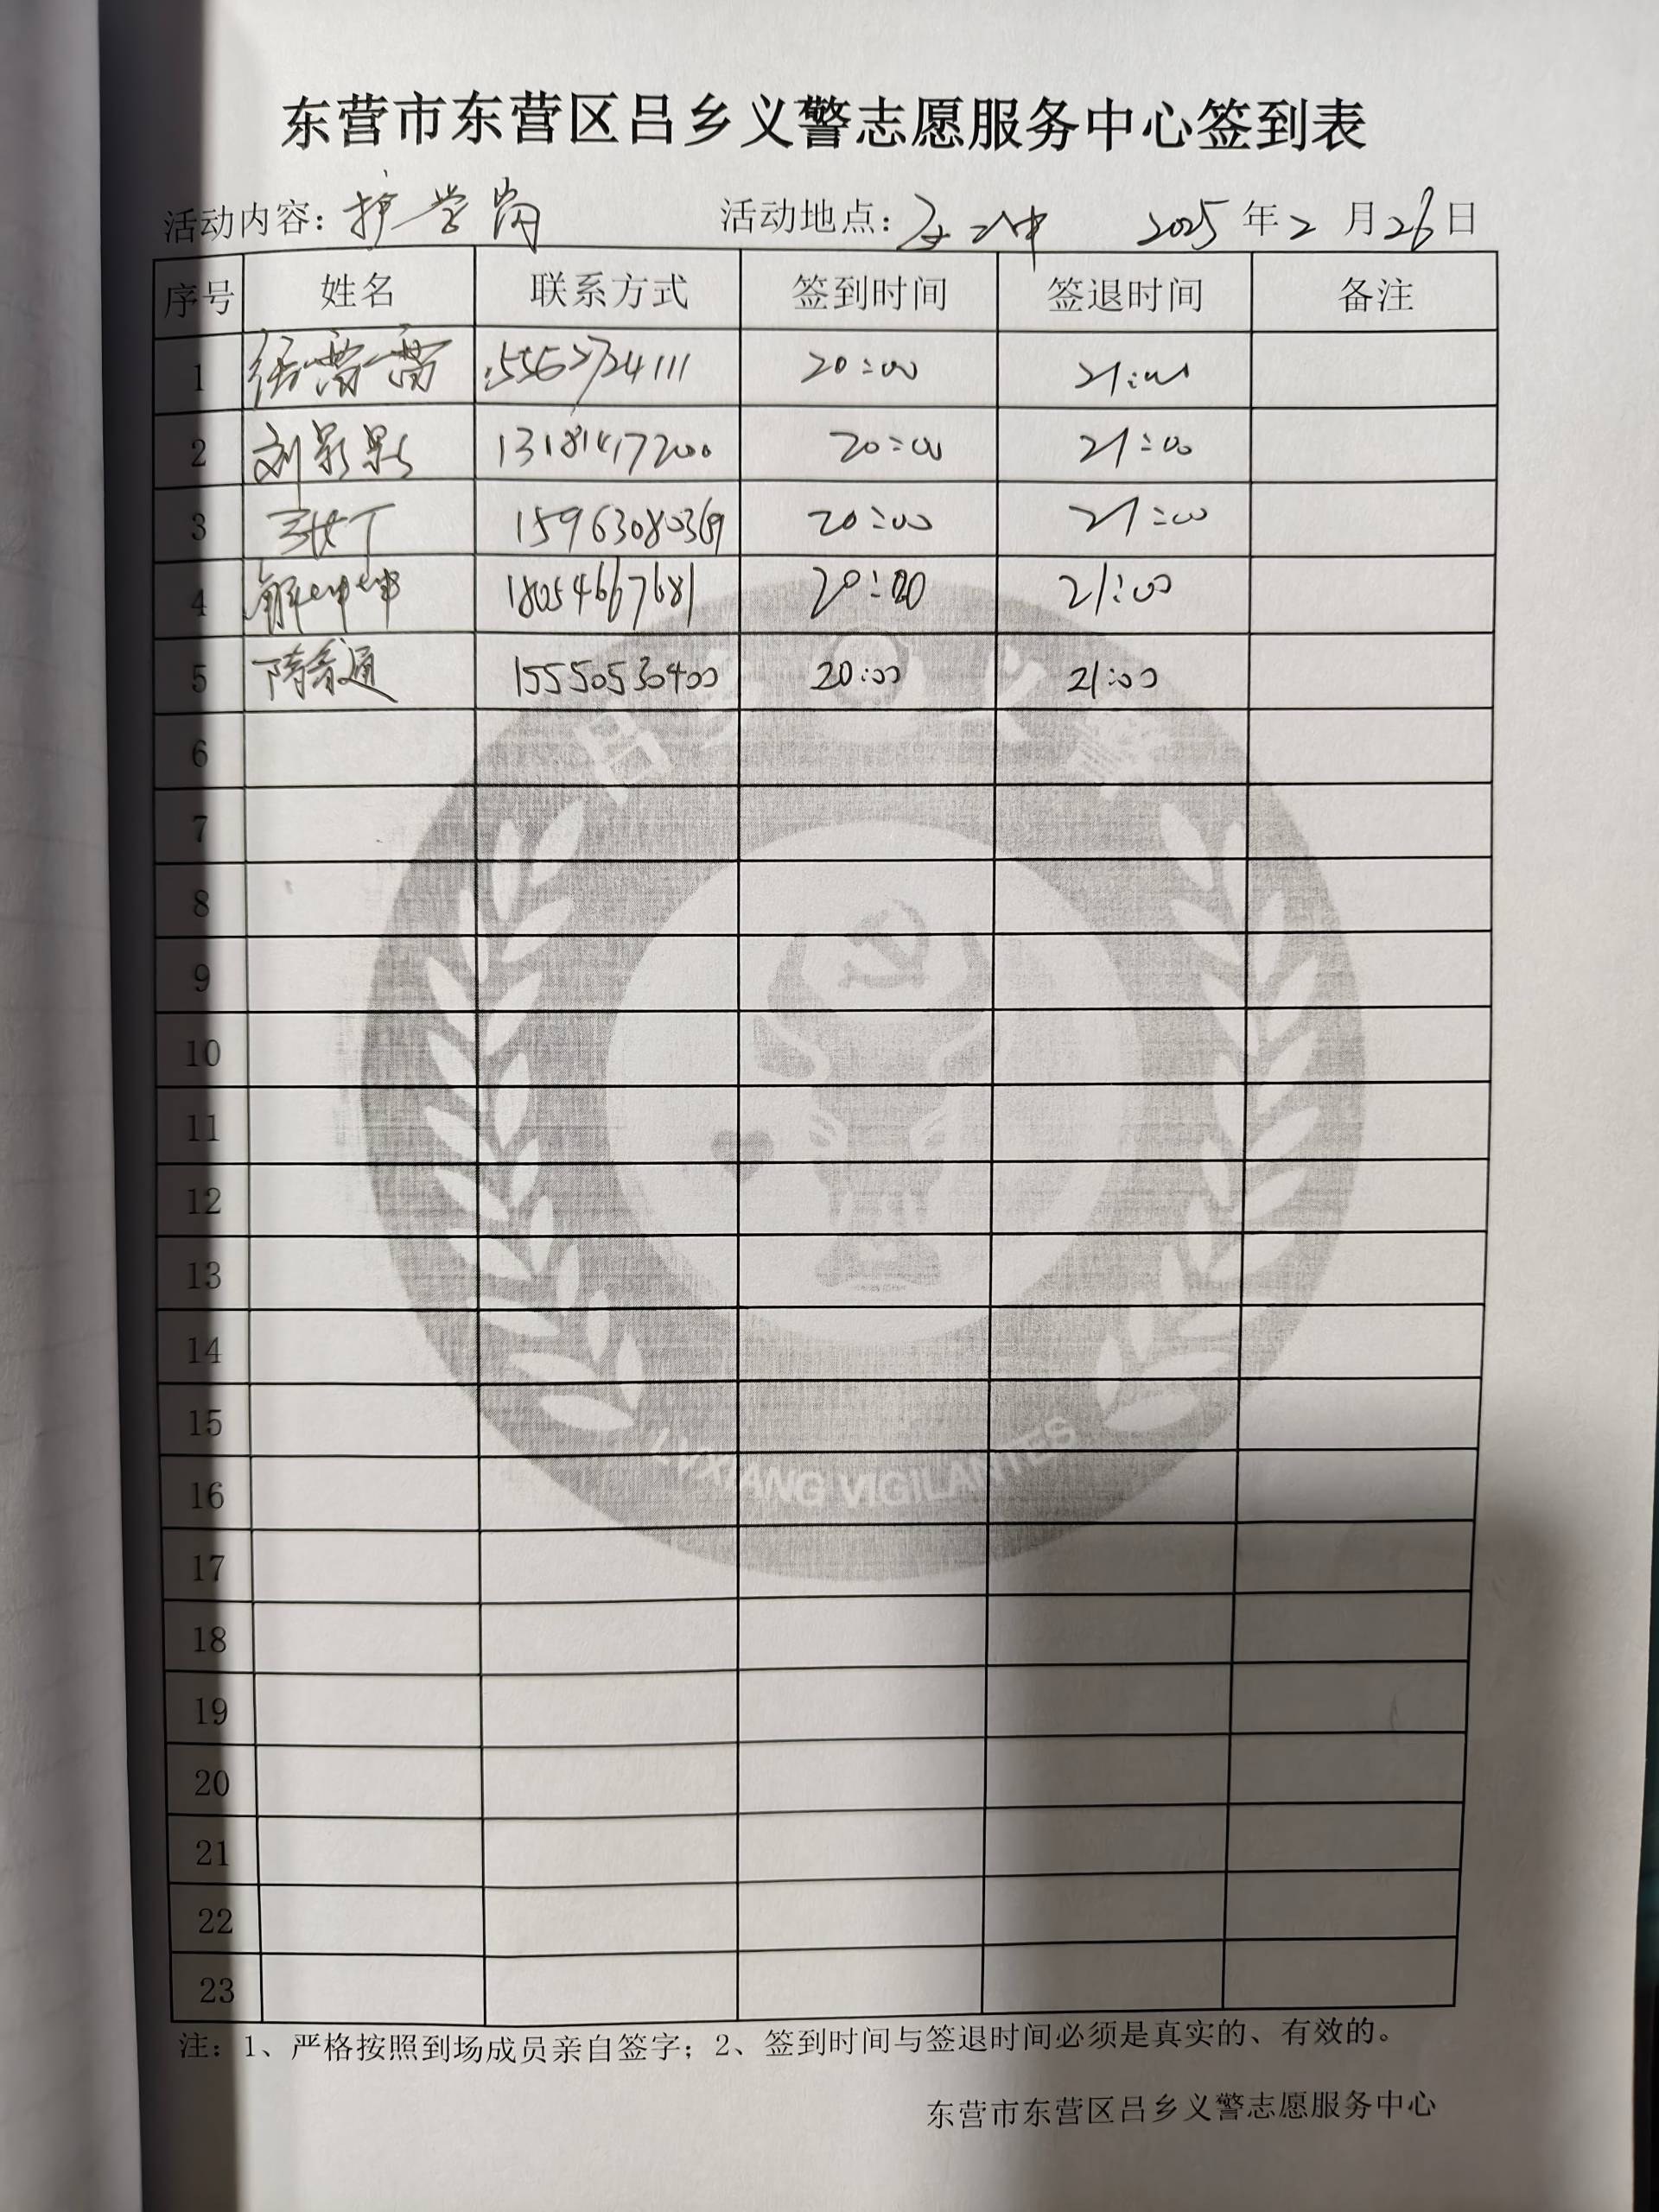 东营市东营区吕乡义警志愿服务中心签到表
活动内容：护学岗 活动地点： 2025年2月26日
序号 姓名 联系方式 签到时间 签退时间 备注
1 20:00 21:00
2 刘影影 1318147200 20:00 21:00
3 张丁 15963080369 20:00 21:00
4 解坤坤 18054667681 20:00 21:00
5 隋通 15550530400 20:00 21:00
6
7
8
9
10
11
12
13
14
15
16
17
18
19
20
21
22
23
吕乡义警
LVXIANG VIGILANTES
注：1、严格按照到场成员亲自签字；2、签到时间与签退时间必须是真实的、有效的。
东营市东营区吕乡义警志愿服务中心